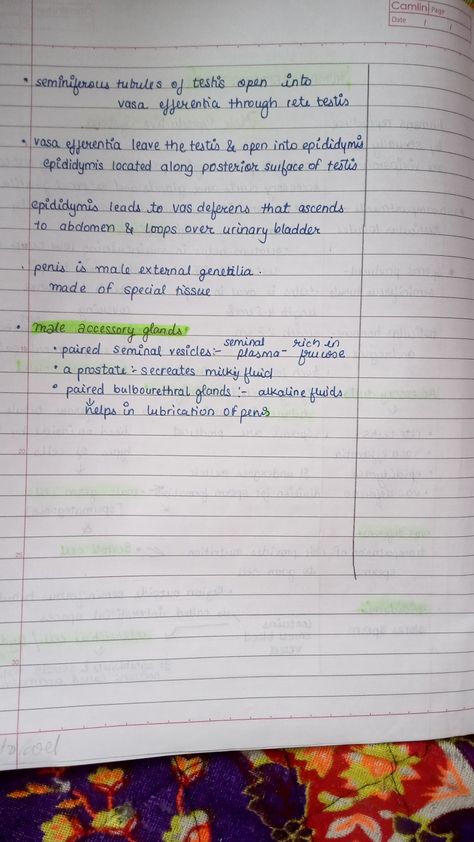 Camlin Page
Date / /
• seminiferous tubules of testis open into
vasa efferentia through rete testis
• vasa efferentia leave the testis & open into epididymis
epididymis located along posterior surface of testis
epididymis leads to vas deferens that ascends
to abdomen & loops over urinary bladder
. penis is male external genetilia.
made of special tissue
• male accessory glands:
• paired seminal vesicles:- seminal plasma- rich in frucose
• a prostate:- secreates milky fluid
• paired bulbourethral glands :- alkaline fluids
↓
helps in lubrication of penis